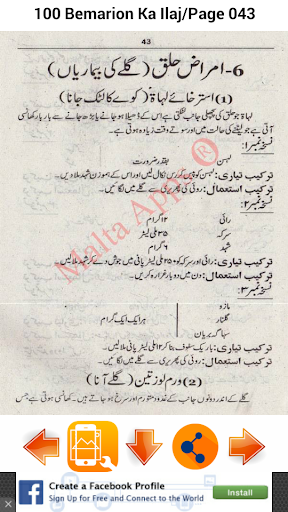 100 Bemarion Ka Ilaj/Page 043
43
6- امراض حلق (گلے کی بیماریاں)
(1) استرخائے لہاۃ (کوے کا لٹک جانا)
لہاۃ جو حلق کی پچھلی جانب لٹکتی ہے اس کے ڈھیلا ہو جانے یا بڑھ جانے سے بار بار کھانسی
آتی ہے جو لیٹنے کی حالت میں اور سوتے وقت زیادہ ہوتی ہے۔
نسخہ نمبر ۱:
لہسن بقدر ضرورت
ترکیب تیاری: لہسن کو پیس کر رس نکال لیں اور اس کے ہموزن شہد ملا دیں۔
ترکیب استعمال: روئی کی پھریری سے گلے میں لگائیں۔
نسخہ نمبر ۲:
رائی ۱۲ گرام
سرکہ ۳۵ ملی لیٹر
شہد ۶ گرام
ترکیب تیاری: رائی اور سرکہ کو ۲۵۰ ملی لیٹر پانی میں جوش دے کر شہد ملا لیں۔
ترکیب استعمال: دن میں دو بار غرارہ کریں۔
نسخہ نمبر ۳:
مازو
گلنار ہر ایک ایک گرام
سہاگہ بریاں
ترکیب تیاری: باریک سفوف بنا کر ۱۲ ملی لیٹر پانی ملا لیں۔
ترکیب استعمال: روئی کی پھریری سے گلے میں لگائیں۔
(2) ورم لوزتین (گلے آنا)
گلے کے اندر دونوں جانب کے غدود متورم اور سرخ ہو جاتے ہیں۔ کھانسی ہوتی ہے جس
Malta Apps ®
Create a Facebook Profile
Sign Up for Free and Connect to the World
Install